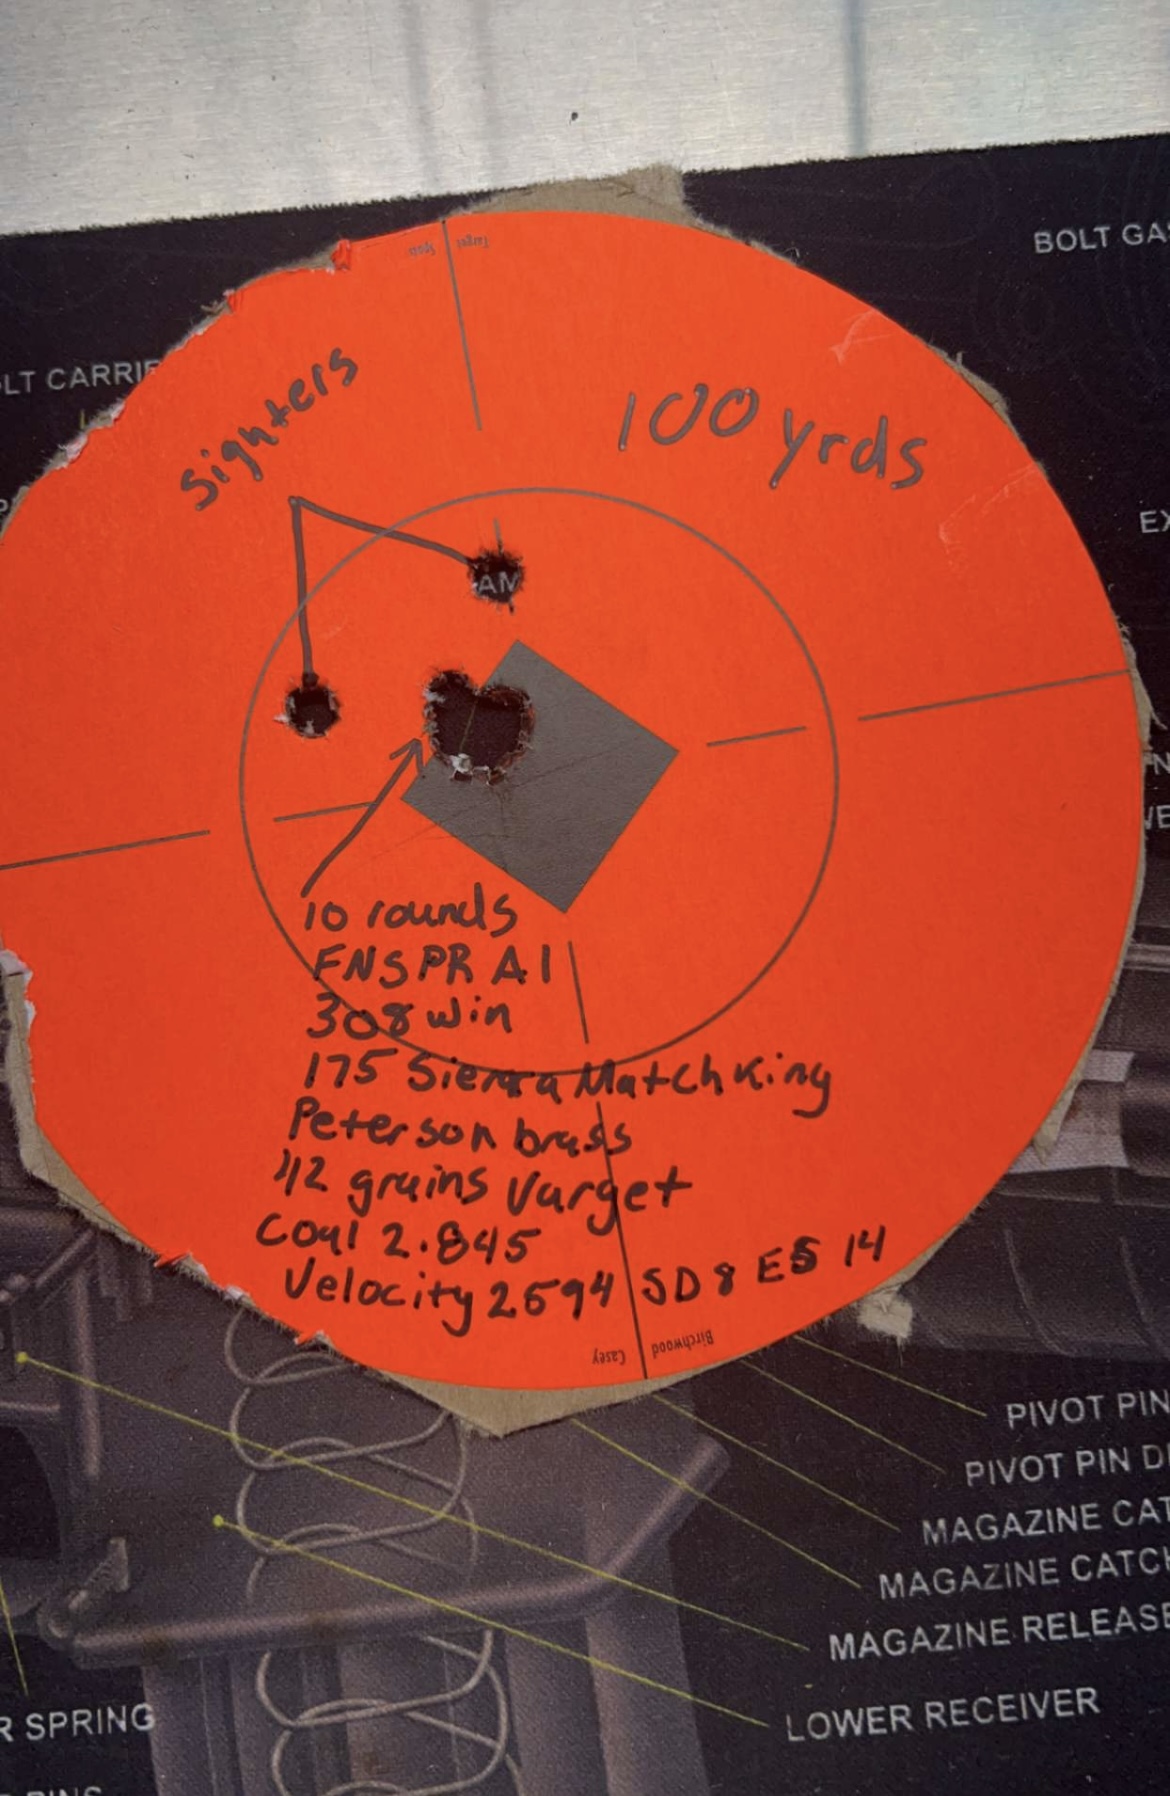 BOLT GA
Target
Spots
LT CARRIE
Sighters
100 yrds
EX
AM
10 rounds
FNSPR A1
308 win
175 Sierra MatchKing
Peterson brass
42 grains Varget
Coal 2.845
Velocity 2594 SD 8 ES 14
Birchwood
Casey
PIVOT PIN
PIVOT PIN D
MAGAZINE CAT
MAGAZINE CATCH
MAGAZINE RELEASE
LOWER RECEIVER
R SPRING